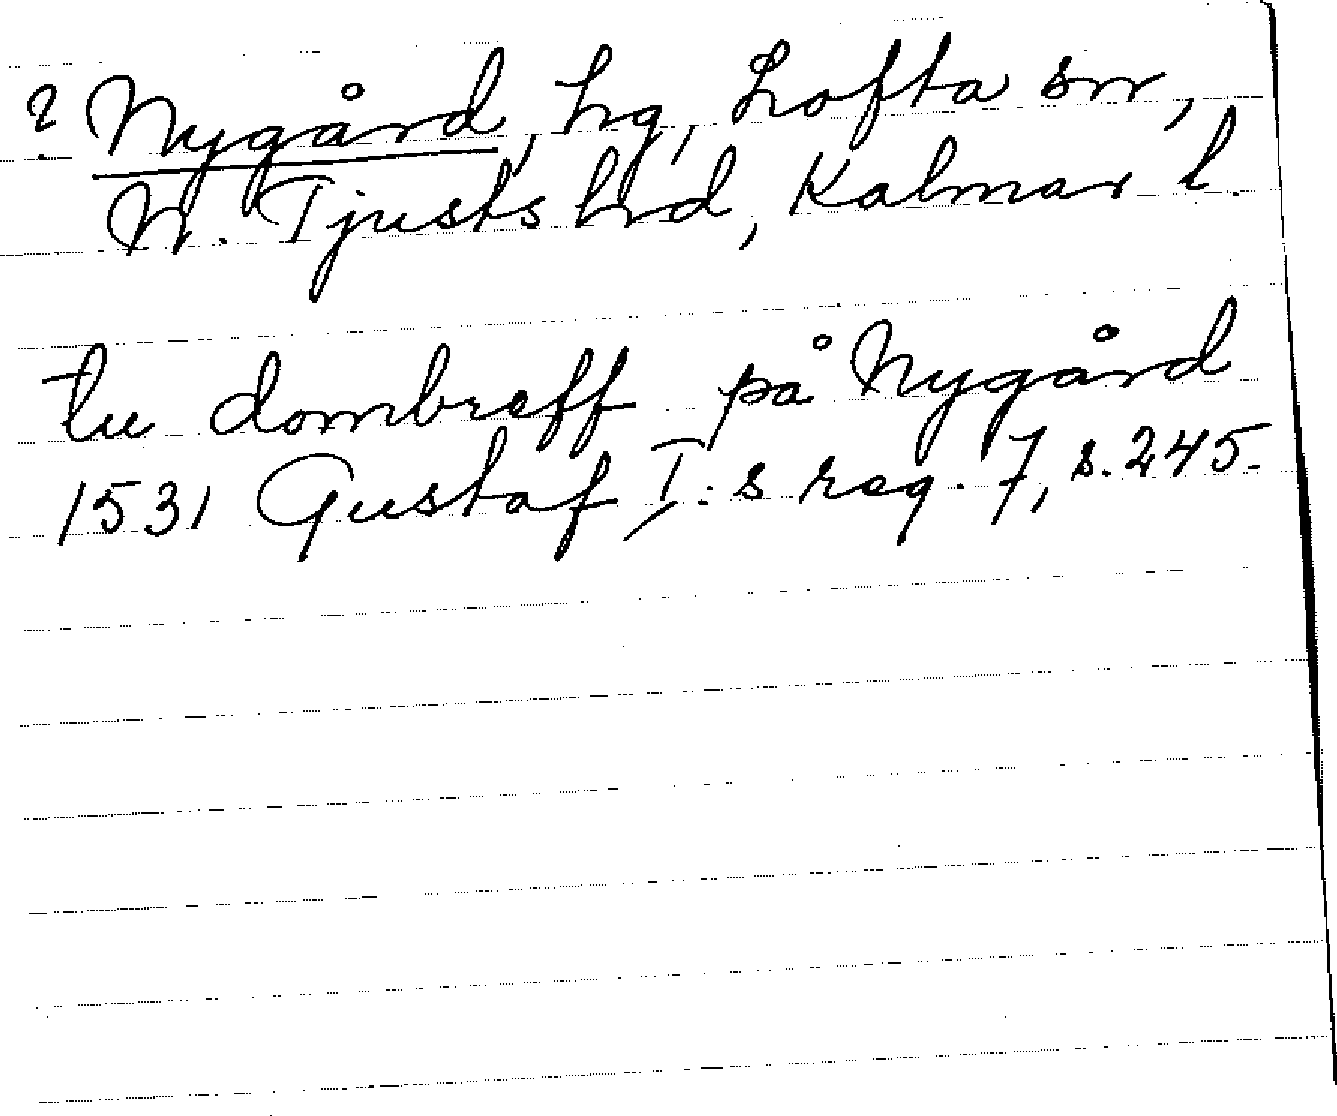 ? Nygård, hg, Lofta sn,
N. Tjusts hrd, Kalmar l.
tu dombreff på Nygård
1531 Gustaf I:s reg. 7, s. 245.